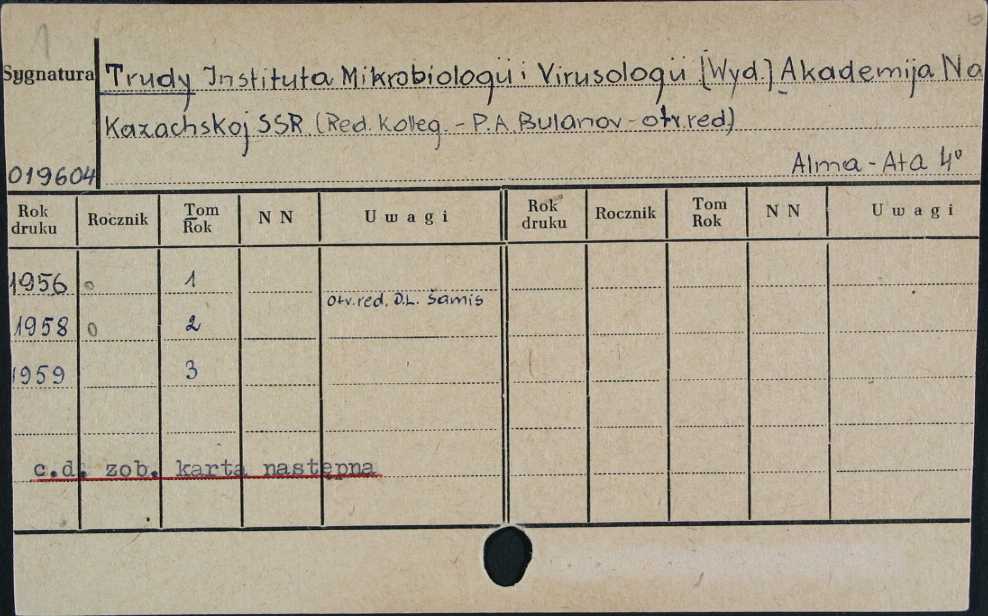 1
Sygnatura Trudy Instituta Mikrobiologii i Virusologii [Wyd.] Akademija Na
Kazachskoj SSR (Red. Kolleg. - P.A. Bulanov - otv.red)
019604 Alma-Ata 4°
Rok druku Rocznik Tom Rok N N Uwagi Rok druku Rocznik Tom Rok N N Uwagi
1956 o 1
otv.red. D.L. Šamis
1958 o 2
1959 3
c.d. zob. karta następna